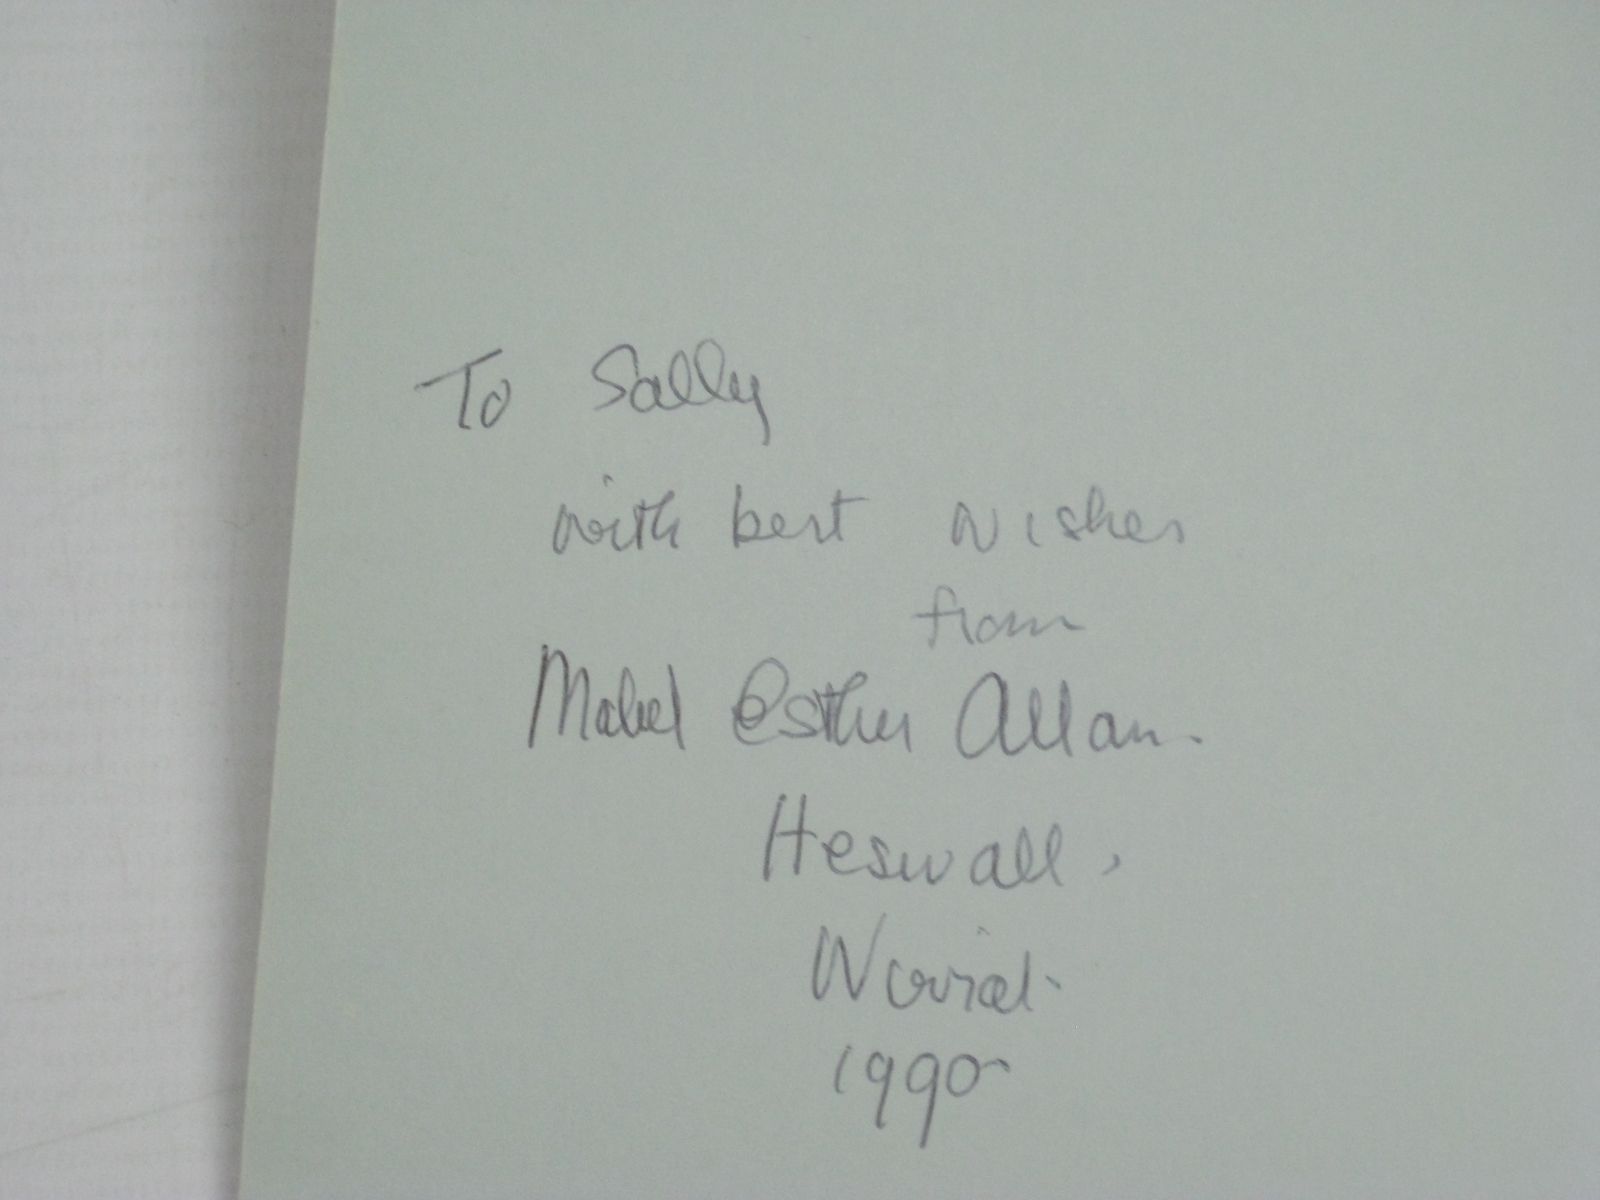 To Sally
with best wishes
from
Mabel Esther Allan.
Heswall,
Wirral.
1990